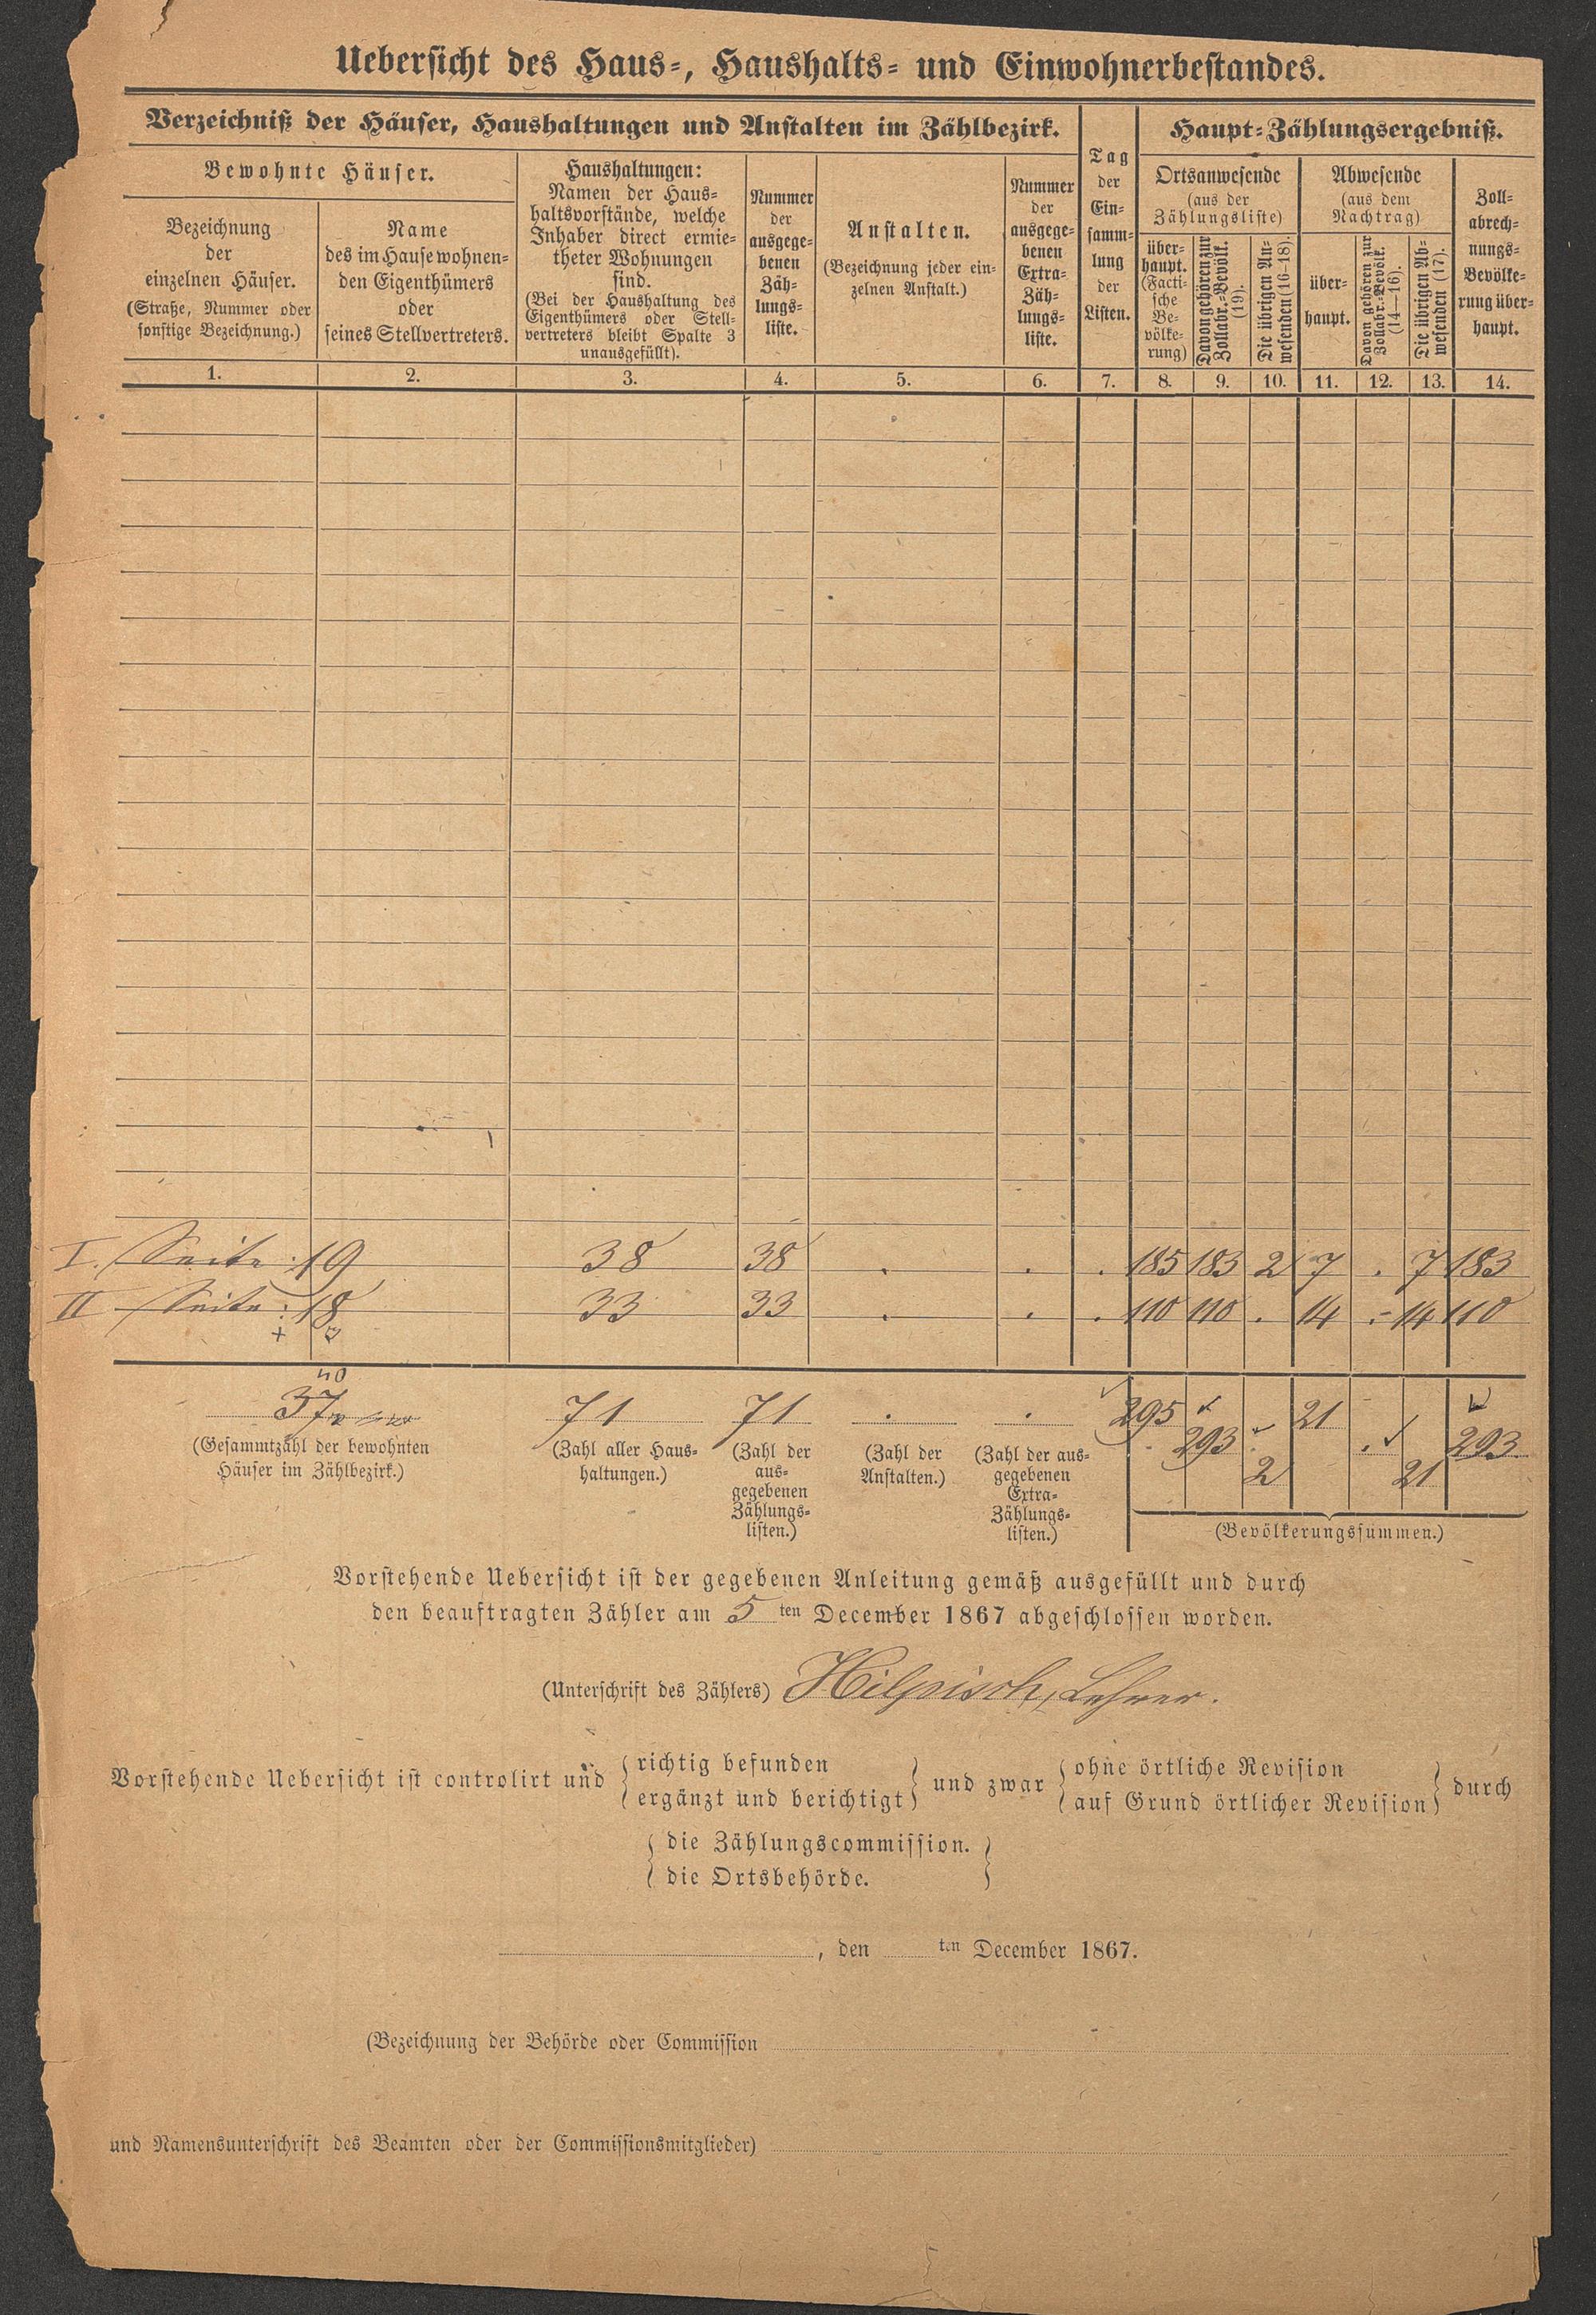 Uebersicht des Haus-, Haushalts- und Einwohnerbestandes.
Verzeichniß der Häuser, Haushaltungen und Anstalten im Zählbezirk.
Haupt-Zählungsergebniß.
Bewohnte Häuser.
Bezeichnung
der
einzelnen Häuser.
(Straße, Nummer oder
sonstige Bezeichnung.)
Name
des im Hause wohnen-
den Eigenthümers
oder
seines Stellvertreters.
Haushaltungen:
Namen der Haus-
haltsvorstände, welche
Inhaber direct ermie-
theter Wohnungen
sind.
(Bei der Haushaltung des
Eigenthümers oder Stell-
vertreters bleibt Spalte 3
unausgefüllt).
Nummer
der
ausgege-
benen
Zäh-
lungs-
liste.
Anstalten.
(Bezeichnung jeder ein-
zelnen Anstalt.)
Nummer
der
ausgege-
benen
Extra-
Zäh-
lungs-
liste.
Tag
der
Ein-
samm-
lung
der
Listen.
Ortsanwesende
(aus der
Zählungsliste)
über-
haupt.
(Facti-
sche
Be-
völke-
rung)
Davon gehören zur
Zollabr.-Bevölk.
(19).
Die übrigen An-
wesenden (16-18).
Abwesende
(aus dem
Nachtrag)
über-
haupt.
Davon gehören zur
Zollabr.-Bevölk.
(14-16).
Die übrigen Ab-
wesenden (17).
Zoll-
abrech-
nungs-
Bevölke-
rung über-
haupt.
1. 2. 3. 4. 5. 6. 7. 8. 9. 10. 11. 12. 13. 14.
I. Seite: 19 38 38 . . . 185 183 2 7 . 7 183
II Seite: 18 33 33 . . . 110 110 . 14 . 14 110
40
37 71 71 . . 295 293 2 21 . 21 293
(Gesammtzahl der bewohnten
Häuser im Zählbezirk.)
(Zahl aller Haus-
haltungen.)
(Zahl der
aus-
gegebenen
Zählungs-
listen.)
(Zahl der
Anstalten.)
(Zahl der aus-
gegebenen
Extra-
Zählungs-
listen.)
(Bevölkerungssummen.)
Vorstehende Uebersicht ist der gegebenen Anleitung gemäß ausgefüllt und durch
den beauftragten Zähler am 5 ten December 1867 abgeschlossen worden.
(Unterschrift des Zählers) Hilpisch, Lehrer.
Vorstehende Uebersicht ist controlirt und { richtig befunden
ergänzt und berichtigt } und zwar { ohne örtliche Revision
auf Grund örtlicher Revision } durch
{ die Zählungscommission.
die Ortsbehörde. }
, den ten December 1867.
(Bezeichnung der Behörde oder Commission
und Namensunterschrift des Beamten oder der Commissionsmitglieder)